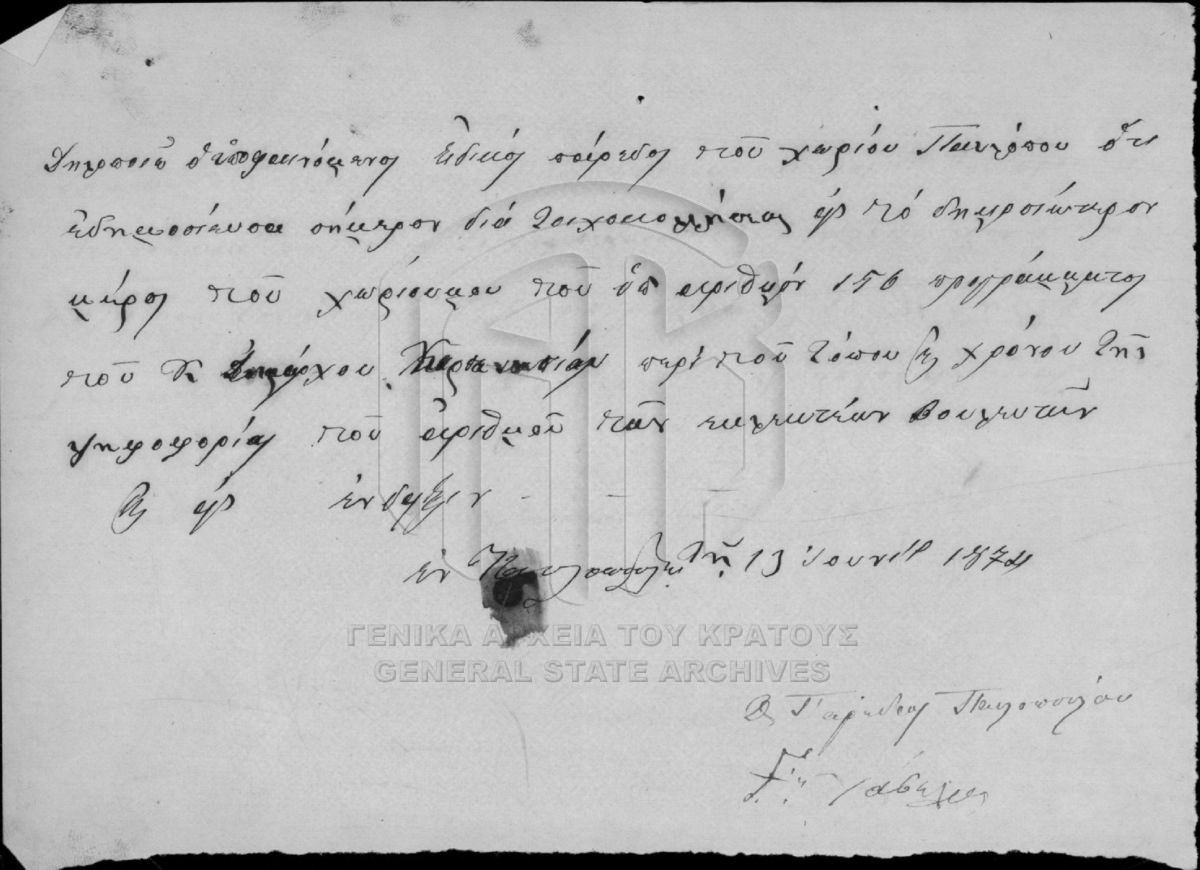 Δηλοποιῶ ὁ ὑποφαινόμενος εἰδικός πάρεδρος τοῦ χωρίου ὅτι
ἐδημοσίευσα σήμερον διά τοιχοκολλήσεως εἰς τό δημοσιώτερον
μέρος τοῦ χωρίου μου τοῦ ὑπ ἀριθμόν 156 προγράμματος
τοῦ Κ Δημάρχου περί τοῦ τόπου καὶ χρόνου τῆς
ψηφοφορίας τοῦ ἀριθμοῦ τῶν ἐκλεκτέων βουλευτῶν
καὶ εἰς ἔνδειξιν
ἐν τῇ 13 Ἰουνίου 1874
ΓΕΝΙΚΑ ΑΡΧΕΙΑ ΤΟΥ ΚΡΑΤΟΥΣ
GENERAL STATE ARCHIVES
Ὁ Πάρεδρος